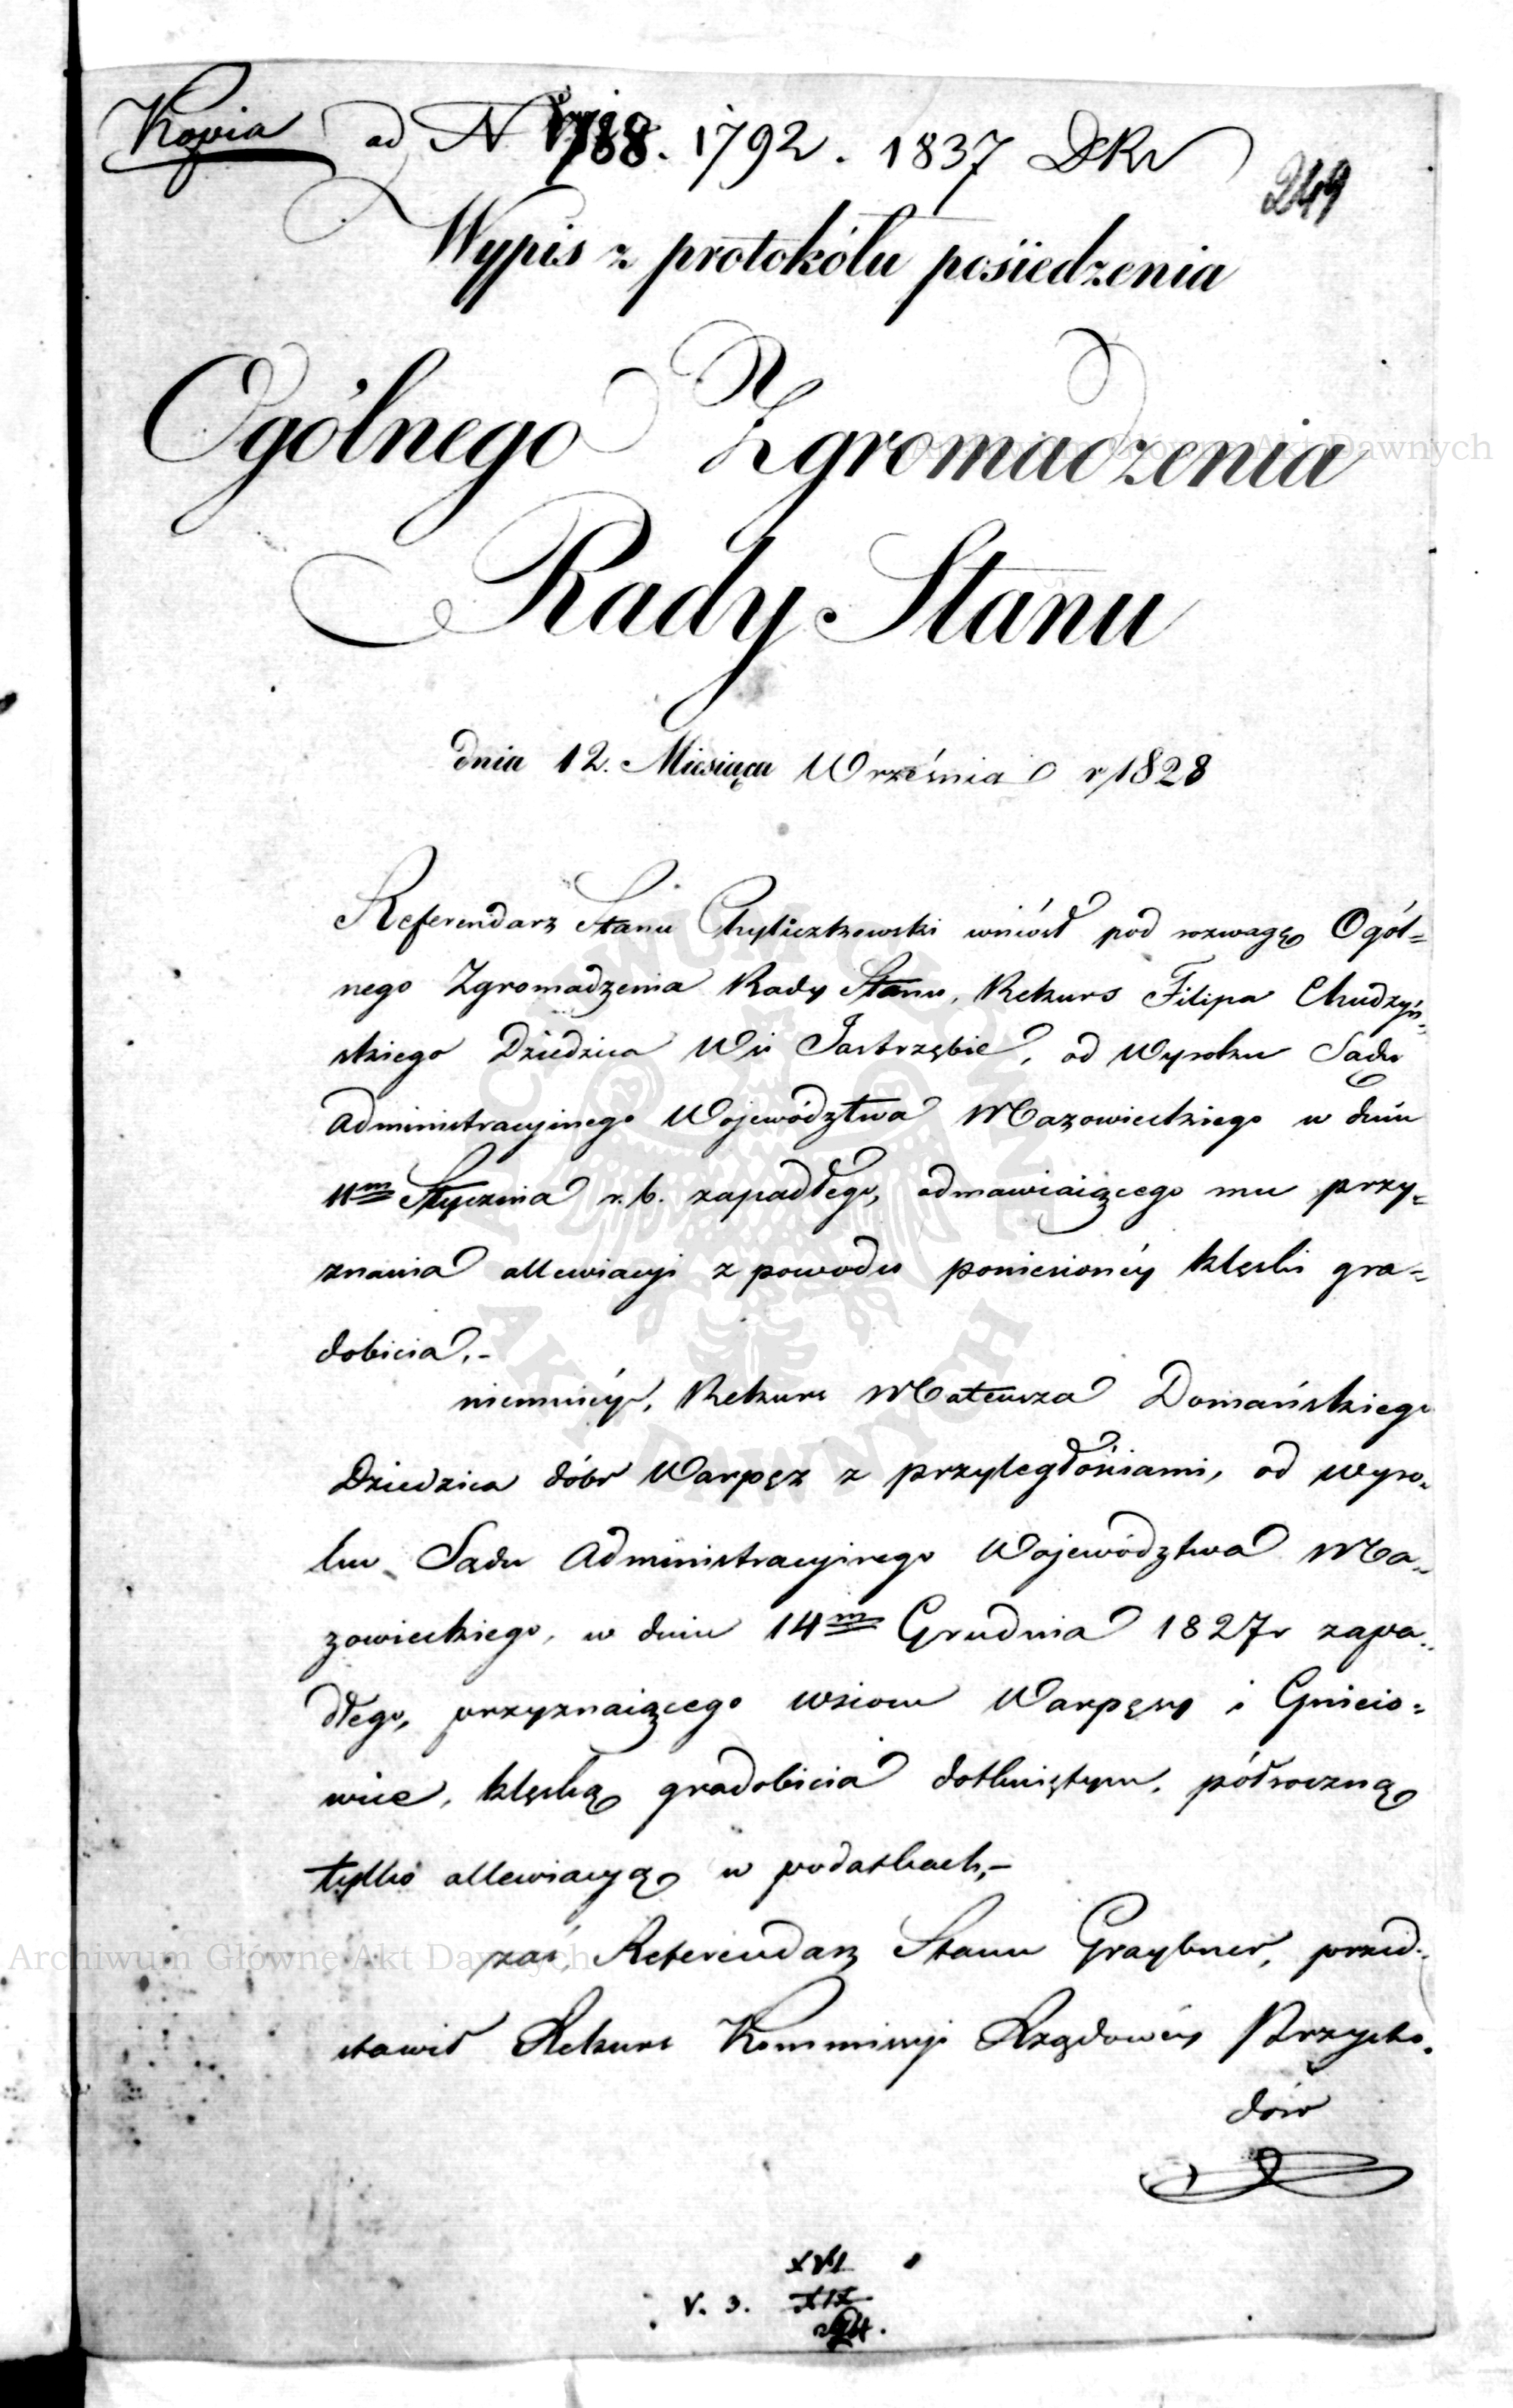 Kopia ad N 1788. 1792. 1837 DKr
249
Wypis z protokółu posiedzenia
Ogólnego Zgromadzenia
Rady Stanu
dnia 12. Miesiąca Września r 1828
Referendarz Stanu Chyliczkowski wniósł pod rozwagę Ogól=
nego Zgromadzenia Rady Stanu, Rekurs Filipa Chudzyń=
skiego Dziedzica Wsi Jastrzębie, od Wyroku Sądu
Administracyjnego Województwa Mazowieckiego w dniu
11m Stycznia r. b. zapadłego, odmawiaiącego mu przy=
znania allewiacyi z powodu poniesionéy klęski gra=
dobicia.-
niemniéy, Rekurs Mateusza Domańskiego
Dziedzica dóbr Warpęz z przyległościami, od wyro=
ku Sądu Administracyjnego Województwa Ma=
zowieckiego, w dniu 14m Grudnia 1827r zapa=
dłego, przyznaiącego wsiom Warpęsy i Gnicio=
wice, klęską gradobicia dotkniętym, półroczną
tylko allewiacyą w podatkach,-
zaś, Referendarz Stanu Graybner, przed=
stawił Rekurs Kommissyi Rządowéy Przycho=
dów
XVI
V. 3. XIX
Archiwum Główne Akt Dawnych